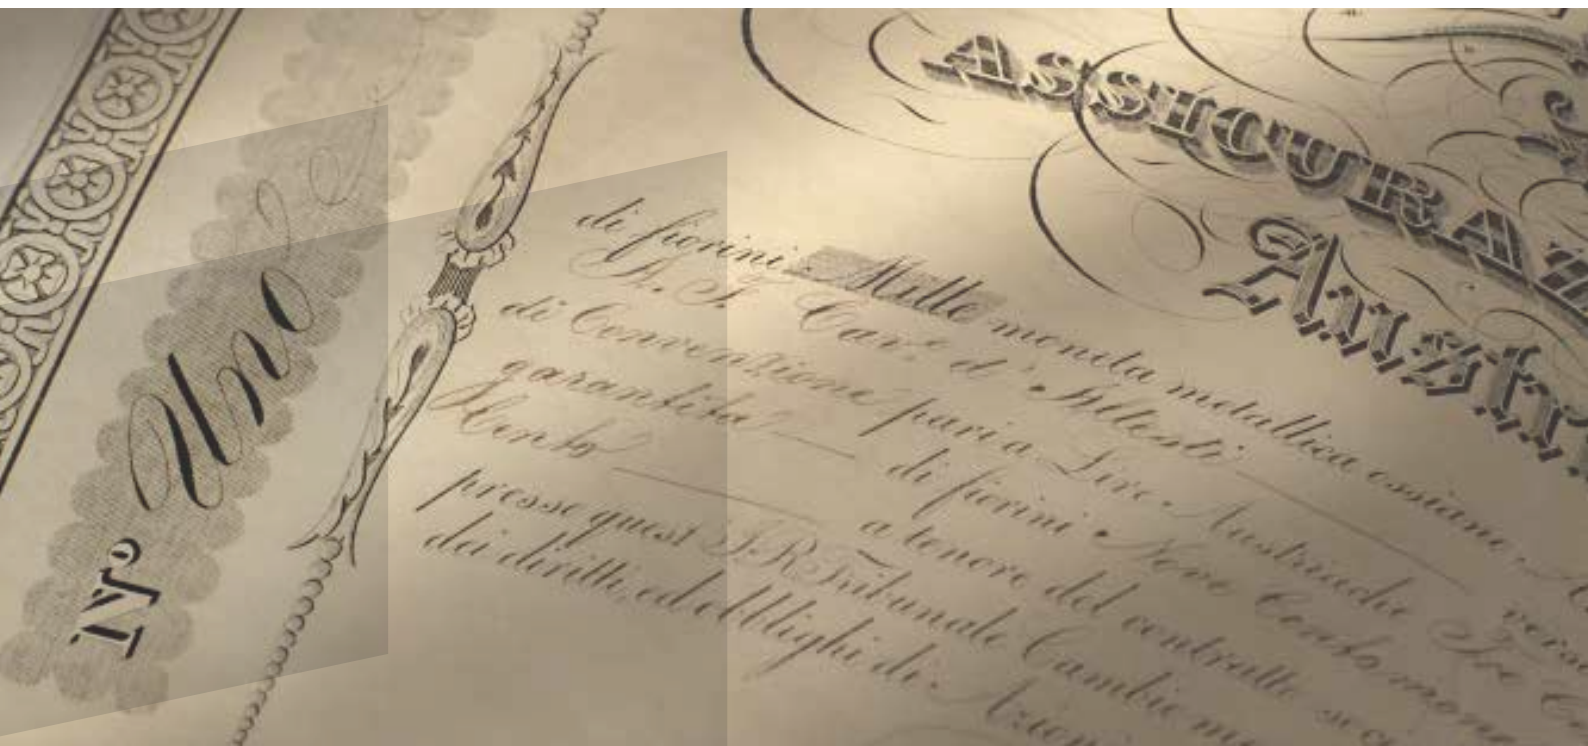 ASSICURAZ
Austr
Nº Uno
di fiorini Mille moneta metallica ossiano
di Convenzione pari a Lire Austriache Tre
garantita di fiorini Nove Cento
Cento a tenore del contratto
presso quest' I. R. Tribunale Cambio
dei diritti, ed obblighi di Azion